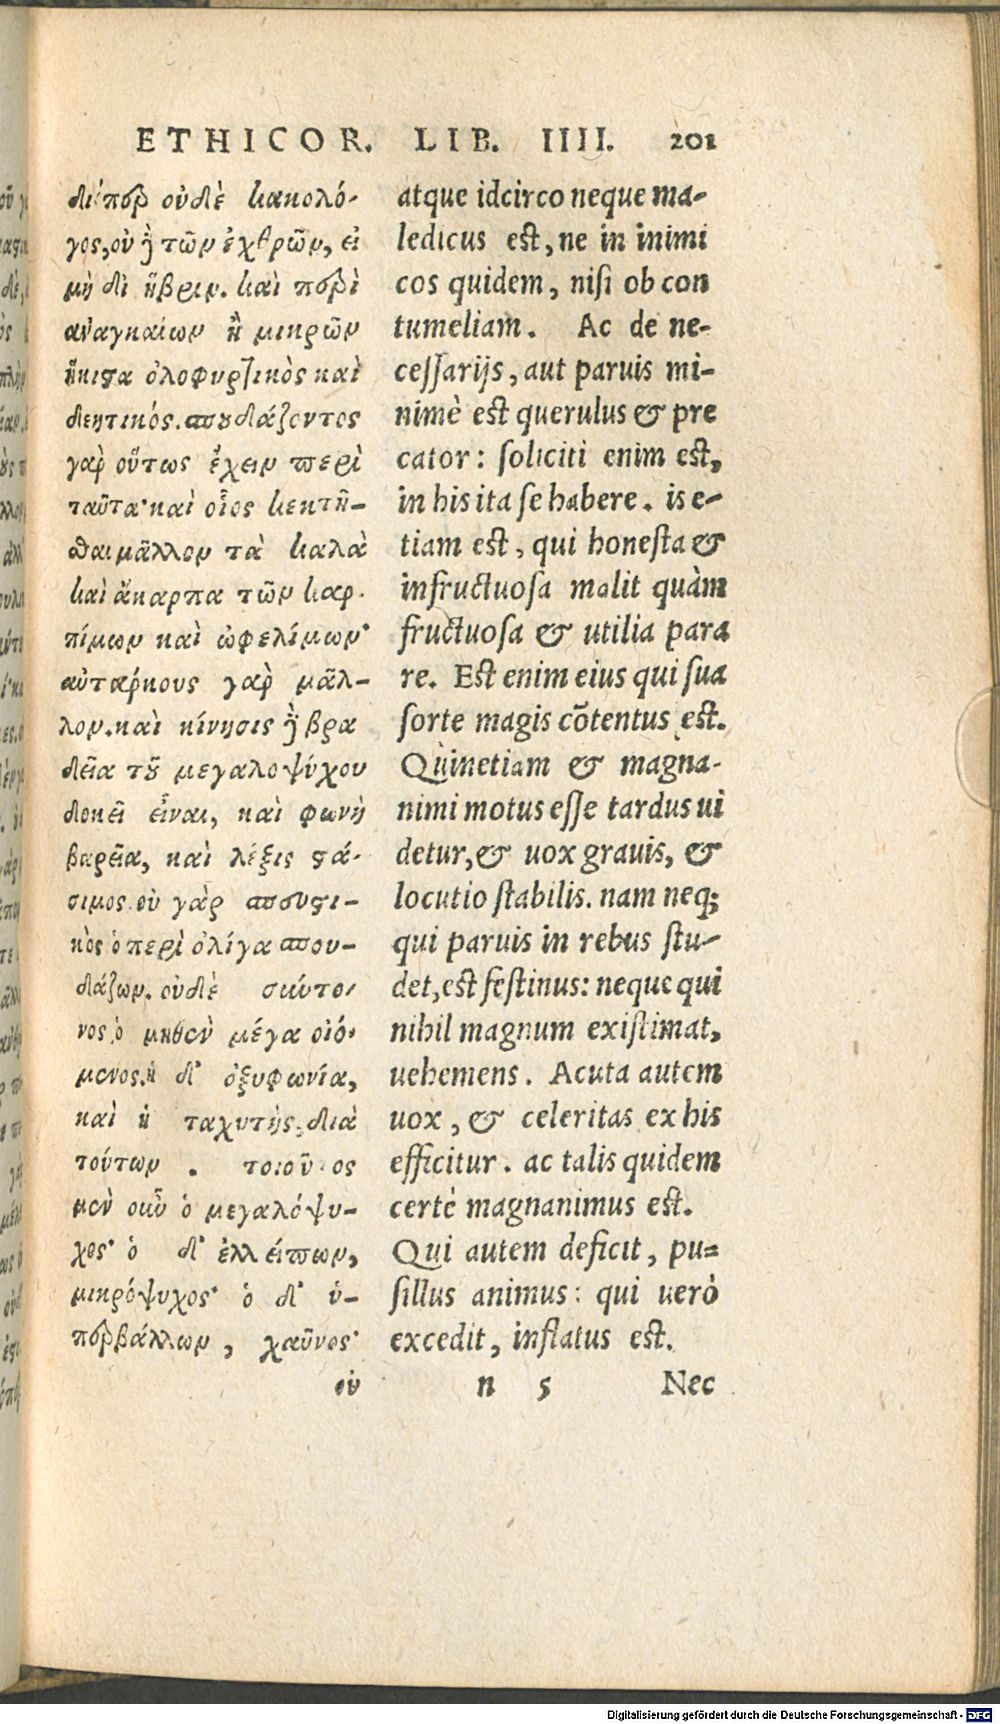 ETHICOR. LIB. IIII. 201
διόπερ οὐδὲ κακολό-
γος, οὐδὲ τῶν ἐχθρῶν, εἰ
μὴ δι' ὕβριν. καὶ περὶ
ἀναγκαίων ἢ μικρῶν
ἥκιστα ὀλοφυρτικὸς καὶ
δεητικός. σπουδάζοντος
γὰρ οὕτως ἔχειν περὶ
ταῦτα· καὶ οἷος κεκτῆ-
σθαι μᾶλλον τὰ καλὰ
καὶ ἄκαρπα τῶν καρ-
πίμων καὶ ὠφελίμων·
αὐτάρκους γὰρ μᾶλ-
λον. καὶ κίνησις δὲ βρα
δεῖα τοῦ μεγαλοψύχου
δοκεῖ εἶναι, καὶ φωνὴ
βαρεῖα, καὶ λέξις στά-
σιμος. οὐ γὰρ σπευστι-
κὸς ὁ περὶ ὀλίγα σπου-
δάζων. οὐδὲ σύντο-
νος ὁ μηθὲν μέγα οἰό-
μενος. ἡ δ' ὀξυφωνία,
καὶ ἡ ταχυτὴς, διὰ
τούτων. τοιοῦτος
μὲν οὖν ὁ μεγαλόψυ-
χος· ὁ δ' ἐλλείπων,
μικρόψυχος· ὁ δ' ὑ-
περβάλλων, χαῦνος·
οὐ
atque idcirco neque ma-
ledicus est, ne in inimi
cos quidem, nisi ob con
tumeliam. Ac de ne-
cessarijs, aut paruis mi-
nimè est querulus & pre
cator: soliciti enim est,
in his ita se habere. is e-
tiam est, qui honesta &
infructuosa malit quàm
fructuosa & utilia para
re. Est enim eius qui sua
sorte magis cõtentus est.
Quinetiam & magna-
nimi motus esse tardus ui
detur, & uox grauis, &
locutio stabilis. nam neq;
qui paruis in rebus stu-
det, est festinus: neque qui
nihil magnum existimat,
uehemens. Acuta autem
uox, & celeritas ex his
efficitur. ac talis quidem
certè magnanimus est.
Qui autem deficit, pu-
sillus animus: qui uerò
excedit, inflatus est.
n 5 Nec
Digitalisierung gefördert durch die Deutsche Forschungsgemeinschaft - DFG